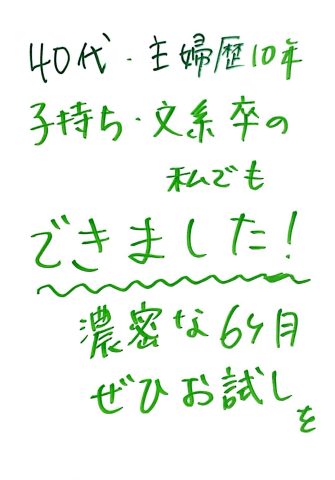 40代・主婦歴10年
子持ち・文系卒の
私でも
できました!
濃密な6ヶ月
ぜひお試しを